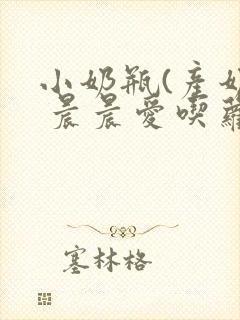 小奶瓶(產奶
晨晨愛喫蘿
塞林格